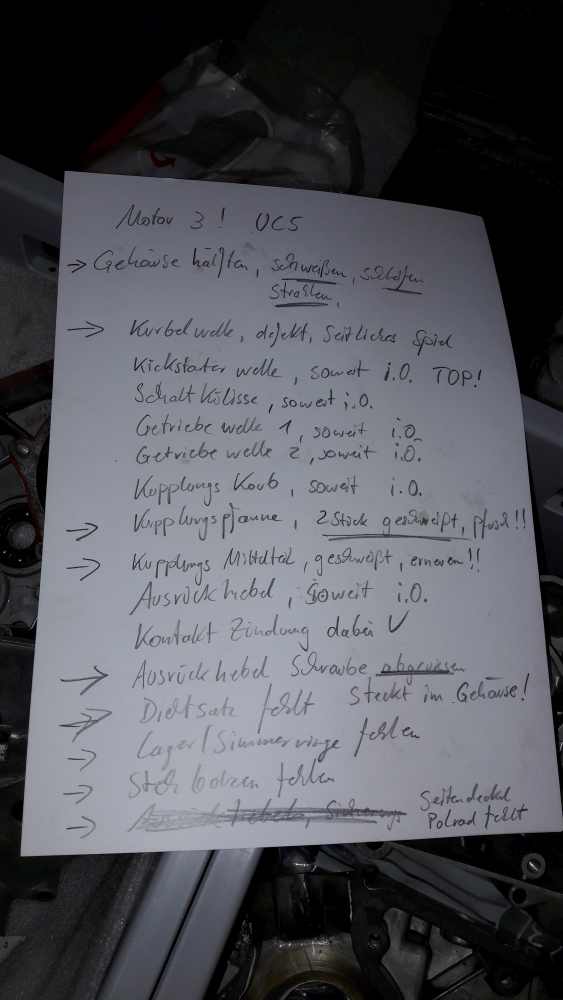 Motor 3! UC5
→ Gehäuse hälften, schweißen, schleifen
Strahlen,
→ Kurbelwelle, defekt, Seitliches Spiel
Kickstarter welle, soweit i.O. TOP!
Schalt Külisse, soweit i.O.
Getriebe welle 1, soweit i.O.
Getriebe welle 2, soweit i.O.
Kupplungs Korb, soweit i.O.
→ Kupplungspfanne, 2 Stück geschweißt, pfusch!!
→ Kupplungs Mittelteil, geschweißt, erneuern!!
Ausrückhebel, soweit i.O.
Kontakt Zündung dabei ✓
→ Ausrückhebel Schraube abgerissen
Steckt im Gehäuse!
→ Dichtsatz fehlt
→ Lager/Simmerringe fehlen
→ Steh bolzen fehlen
→ Seitendeckel
Polrad fehlt